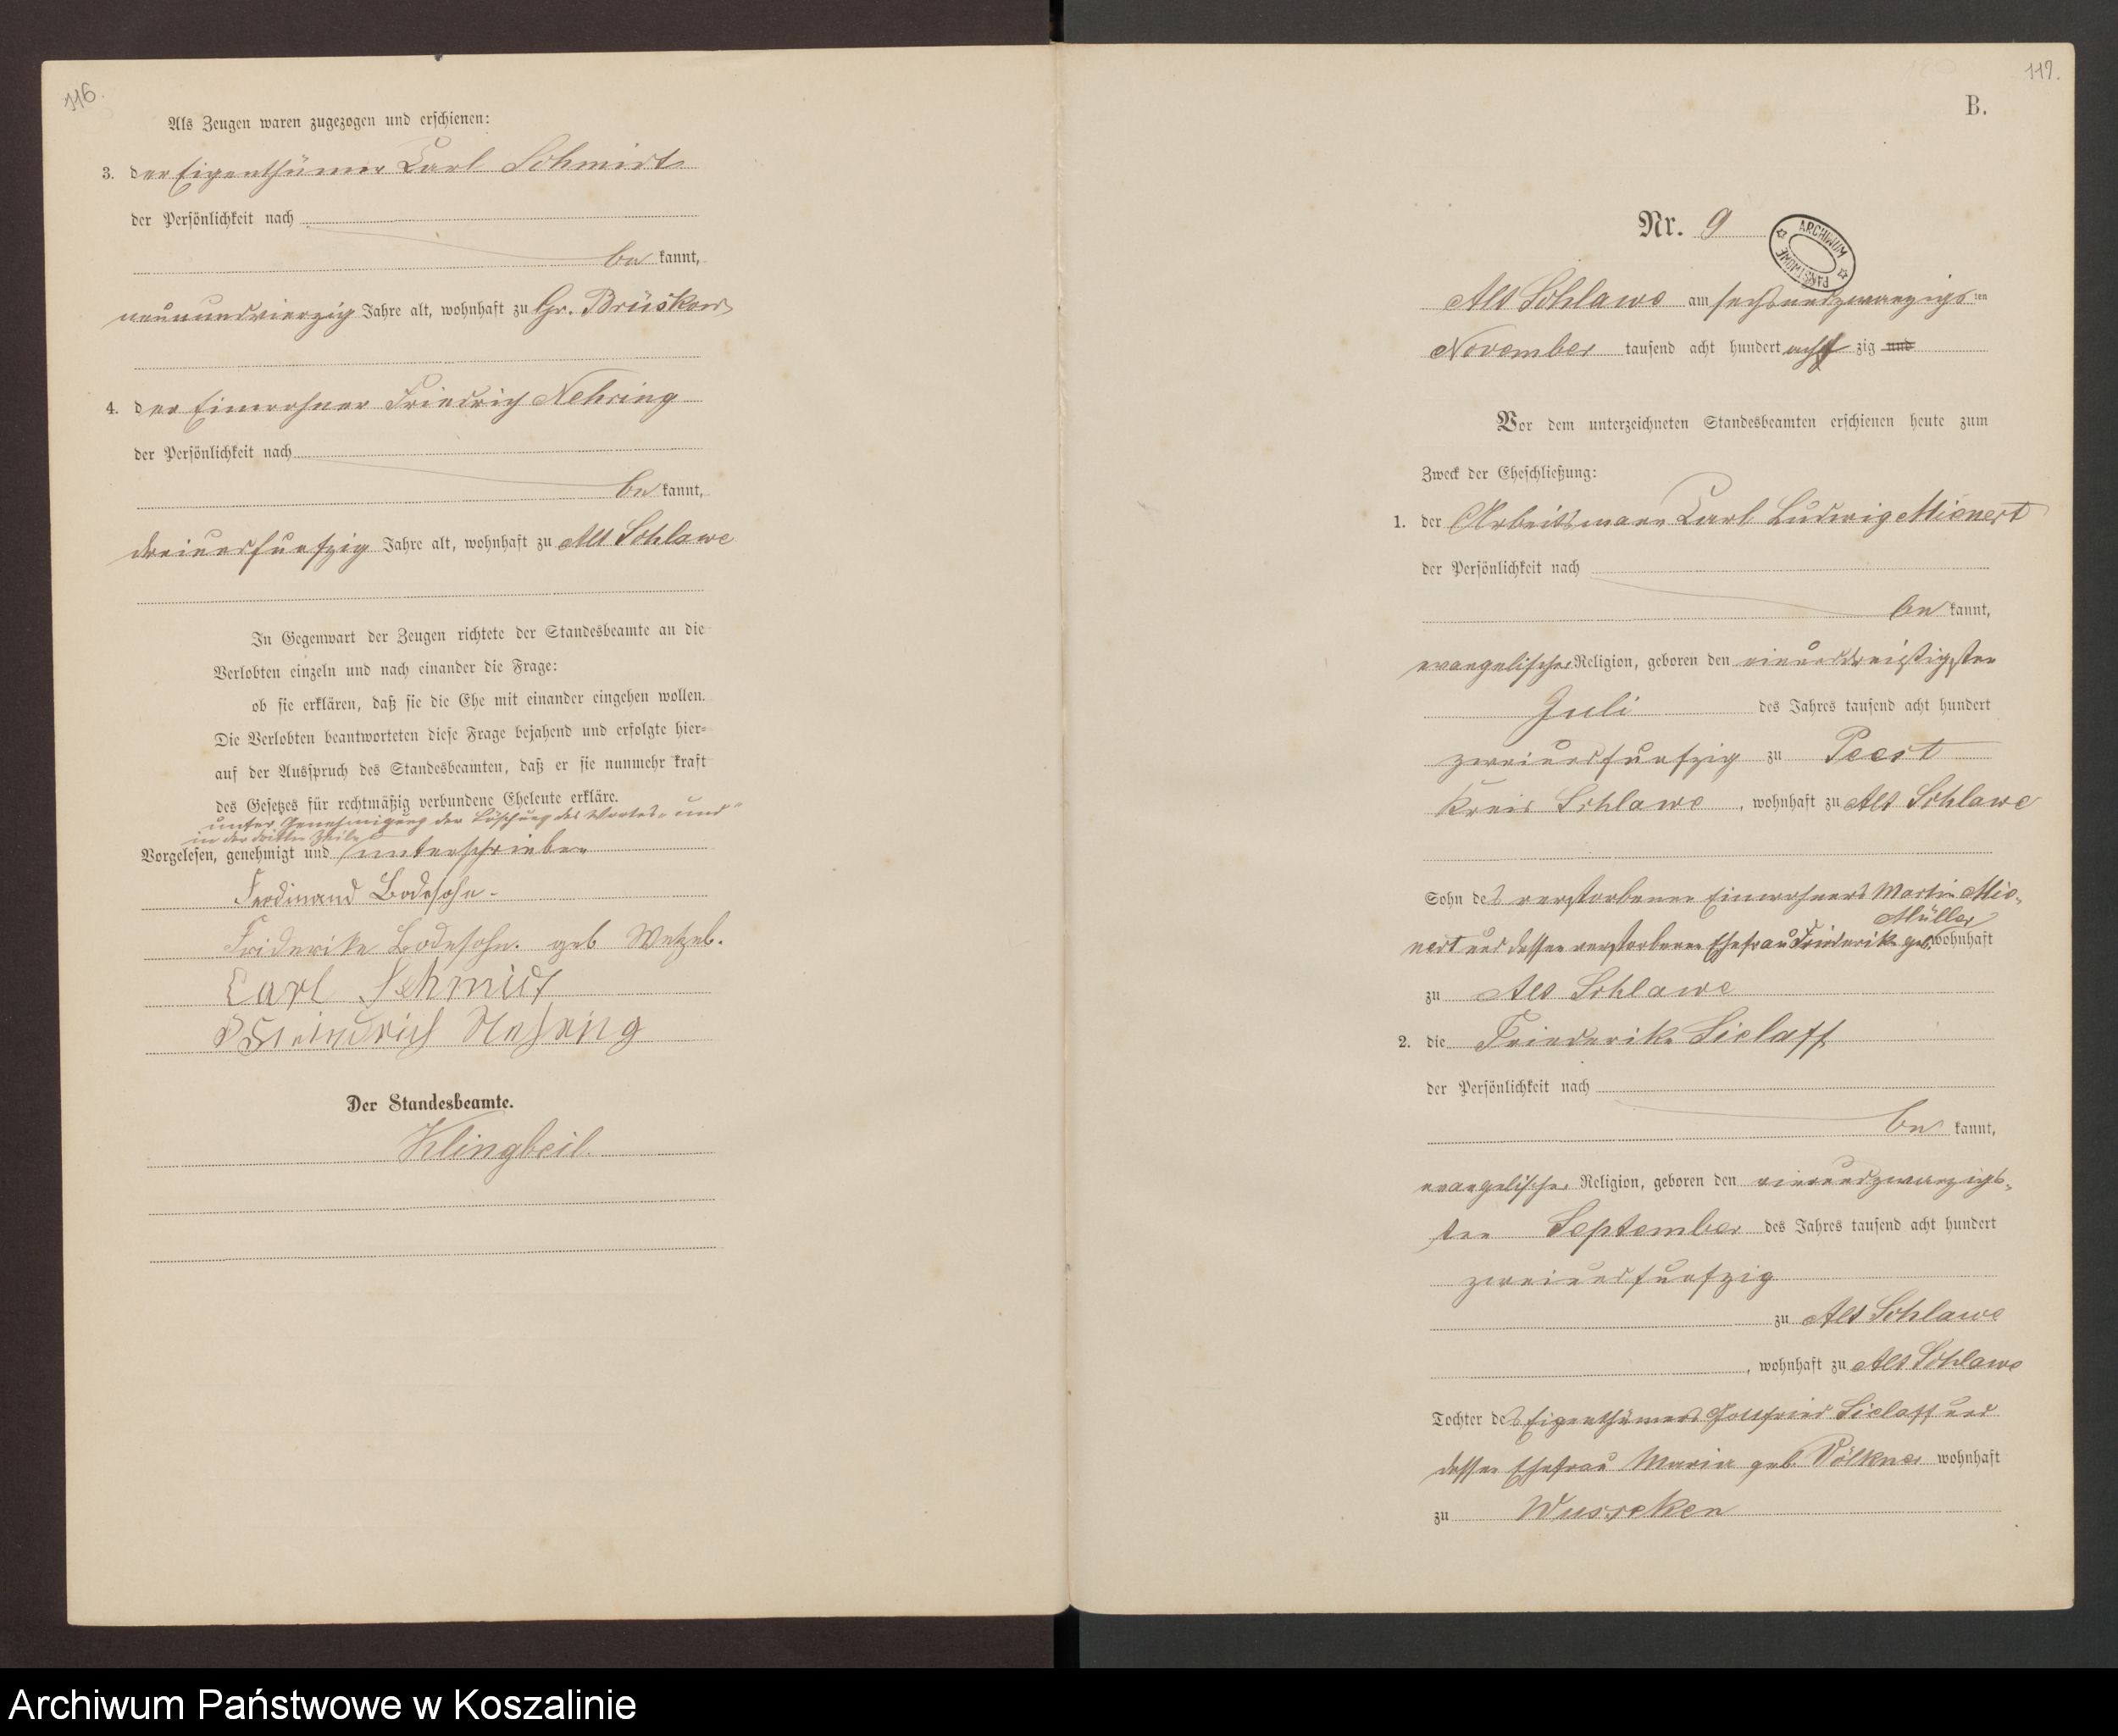 116.
Als Zeugen waren zugezogen und erschienen:
3. der Eigenthümer Carl Schmidt
der Persönlichkeit nach
be kannt,
neunundvierzig Jahre alt, wohnhaft zu Gr. Brüskow
4. der Einwohner Friedrich Nehring
der Persönlichkeit nach
be kannt,
dreiundfunfzig Jahre alt, wohnhaft zu Alt Schlawe
In Gegenwart der Zeugen richtete der Standesbeamte an die
Verlobten einzeln und nach einander die Frage:
ob sie erklären, daß sie die Ehe mit einander eingehen wollen.
Die Verlobten beantworteten diese Frage bejahend und erfolgte hier=
auf der Ausspruch des Standesbeamten, daß er sie nunmehr kraft
des Gesetzes für rechtmäßig verbundene Eheleute erkläre.
unter Genehmigung der Löschung des Wortes „und“
in der dritten Zeile
Vorgelesen, genehmigt und unterschrieben
Ferdinand Bodesohn.
Friderike Bodesohn. geb
Carl Schmidt
Friedrich Nehring
Der Standesbeamte.
Klingbeil.
117.
B.
Nr. 9
ARCHIWUM PAŃSTWOWE
Alt Schlawe am sechsundzwanzigs ten
November tausend acht hundert acht zig und
Vor dem unterzeichneten Standesbeamten erschienen heute zum
Zweck der Eheschließung:
1. der Arbeitsmann Carl Ludwig Mienert
der Persönlichkeit nach
be kannt,
evangelischer Religion, geboren den einunddreißigsten
Juli des Jahres tausend acht hundert
zweiundfunfzig zu Peest
Kreis Schlawe, wohnhaft zu Alt Schlawe
Sohn des verstorbenen Einwohners Martin Mie-
Müller
nert und dessen verstorbenen Ehefrau Friederike geb. wohnhaft
zu Alt Schlawe
2. die Friederike Sielaff
der Persönlichkeit nach
be kannt,
evangelischer Religion, geboren den
ten September des Jahres tausend acht hundert
zweiundfunfzig
zu Alt Schlawe
, wohnhaft zu Alt Schlawe
Tochter des Eigenthümers Gottfried Sielaff und
dessen Ehefrau Marie geb. Völkner wohnhaft
zu Wusseken
Archiwum Państwowe w Koszalinie